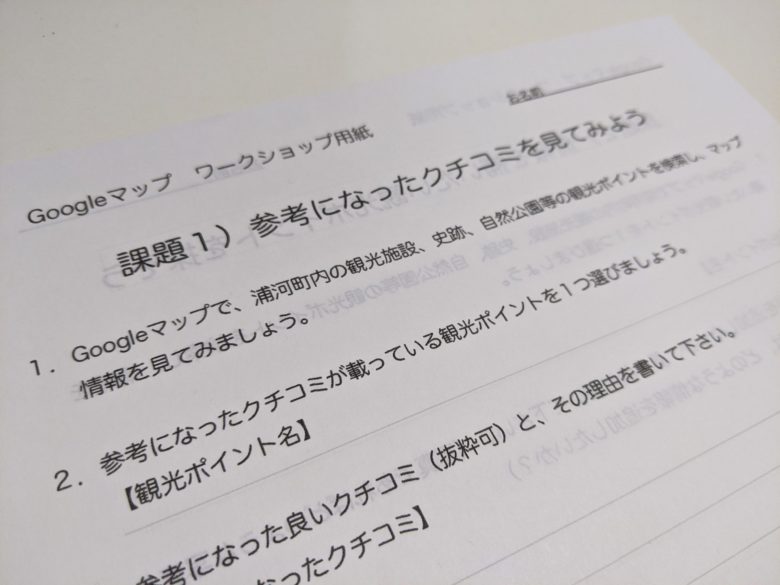 お名前
Googleマップ ワークショップ用紙
課題1）参考になったクチコミを見てみよう
1. Googleマップで、浦河町内の観光施設、史跡、自然公園等の観光ポイントを検索し、マップ
情報を見てみましょう。
2. 参考になったクチコミが載っている観光ポイントを1つ選びましょう。
【観光ポイント名】
参考になった良いクチコミ（抜粋可）と、その理由を書いて下さい。
なったクチコミ】